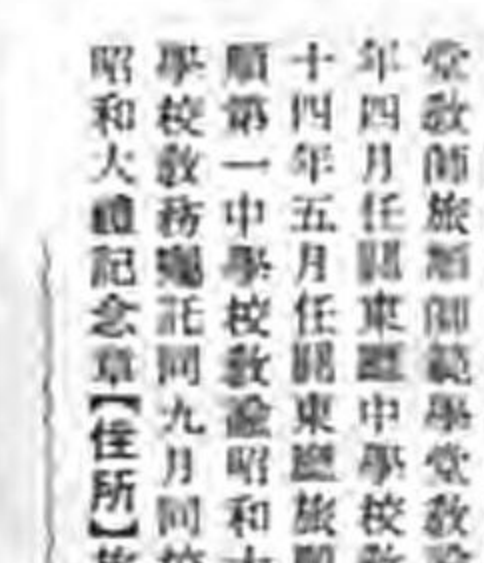 堂教師旅順師範學堂教諭
年四月任關東廳中學校教
十四年五月任關東廳旅順
順第一中學校教諭昭和十
學校教務囑託同九月同校
昭和大禮記念章【住所】旅